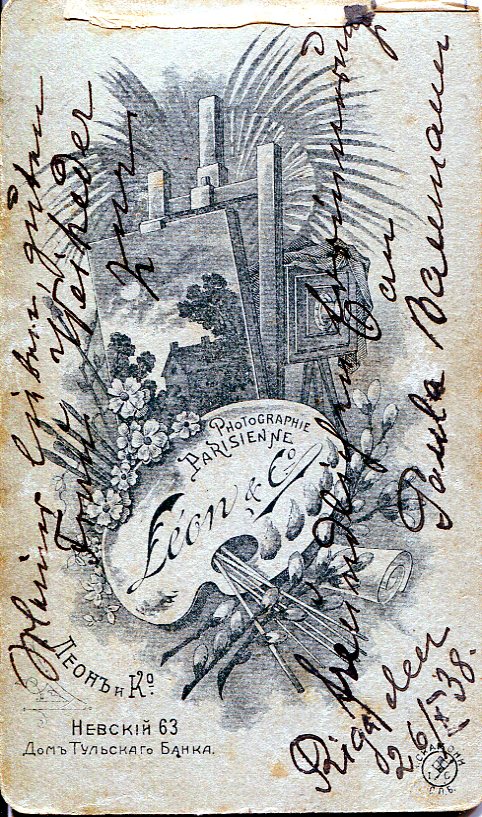 Meiner lieben, guten
zur
freundlichen Erinnerung
an
Paula Baumann
Riga, den
26/IX 38.
PHOTOGRAPHIE
PARISIENNE
Léon & Co
ЛЕОНЪ и Ко.
НЕВСКІЙ 63
ДОМЪ ТУЛЬСКАГО БАНКА.
СКАМОНИ
С.П.Б.